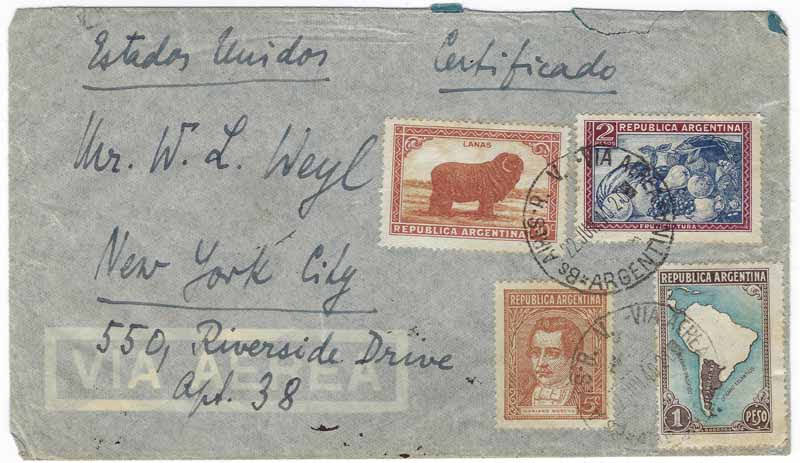 Estados Unidos Certificado
Mr. W. L. Weyl
New York City
550, Riverside Drive
Apt. 38
VIA AEREA
LANAS
REPUBLICA ARGENTINA
2 PESOS
REPUBLICA ARGENTINA
FRUTICULTURA
REPUBLICA ARGENTINA
5c
MARIANO MORENO
REPUBLICA ARGENTINA
1 PESO
Bs AIRES·R. V. VIA AEREA
ARGENTINA
R. V. VIA AEREA